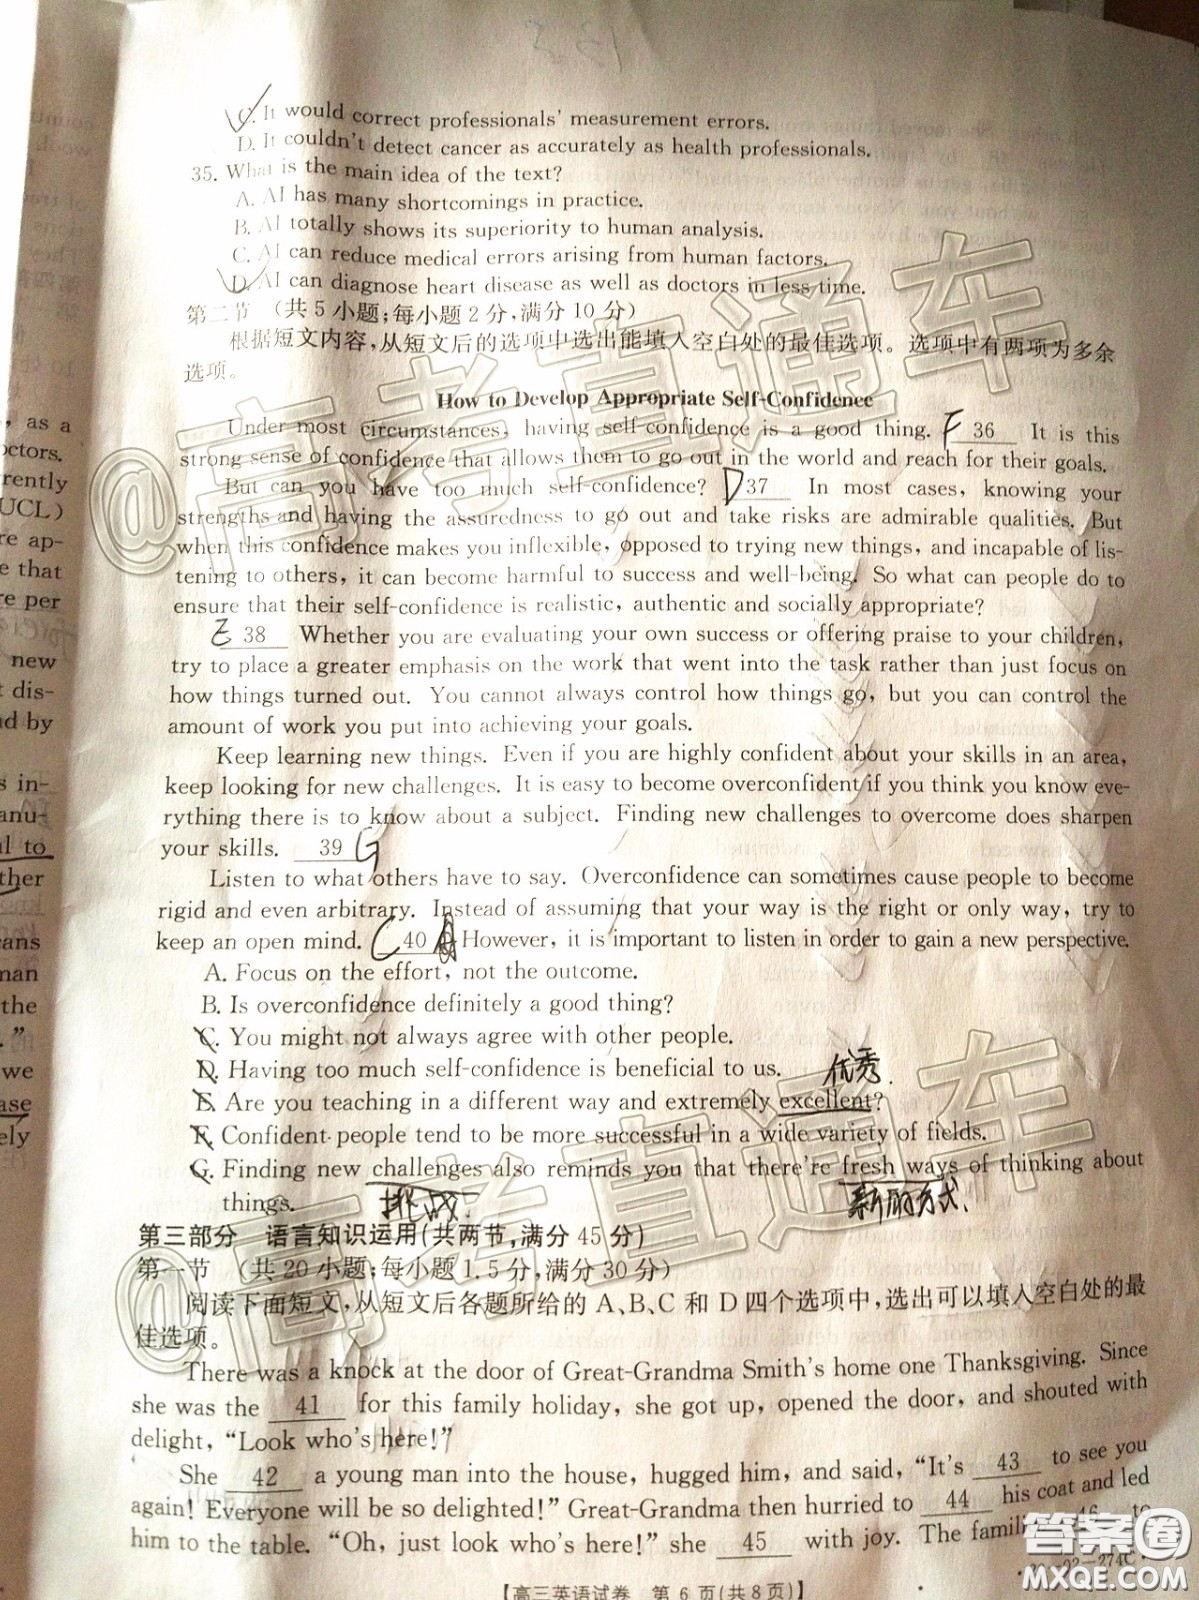 C. It would correct professionals' measurement errors.
D. It couldn't detect cancer as accurately as health professionals.
35. What is the main idea of the text?
A. AI has many shortcomings in practice.
B. AI totally shows its superiority to human analysis.
C. AI can reduce medical errors arising from human factors.
D. AI can diagnose heart disease as well as doctors in less time.
第二节 (共5小题;每小题2分,满分10分)
根据短文内容,从短文后的选项中选出能填入空白处的最佳选项。选项中有两项为多余
选项。
How to Develop Appropriate Self-Confidence
Under most circumstances, having self-confidence is a good thing. F 36 It is this
strong sense of confidence that allows them to go out in the world and reach for their goals.
But can you have too much self-confidence? D 37 In most cases, knowing your
strengths and having the assuredness to go out and take risks are admirable qualities. But
when this confidence makes you inflexible, opposed to trying new things, and incapable of lis-
tening to others, it can become harmful to success and well-being. So what can people do to
ensure that their self-confidence is realistic, authentic and socially appropriate?
E 38 Whether you are evaluating your own success or offering praise to your children,
try to place a greater emphasis on the work that went into the task rather than just focus on
how things turned out. You cannot always control how things go, but you can control the
amount of work you put into achieving your goals.
Keep learning new things. Even if you are highly confident about your skills in an area,
keep looking for new challenges. It is easy to become overconfident if you think you know eve-
rything there is to know about a subject. Finding new challenges to overcome does sharpen
your skills. 39 G
Listen to what others have to say. Overconfidence can sometimes cause people to become
rigid and even arbitrary. Instead of assuming that your way is the right or only way, try to
keep an open mind. C 40 However, it is important to listen in order to gain a new perspective.
A. Focus on the effort, not the outcome.
B. Is overconfidence definitely a good thing?
C. You might not always agree with other people.
D. Having too much self-confidence is beneficial to us.
优秀.
E. Are you teaching in a different way and extremely excellent?
F. Confident people tend to be more successful in a wide variety of fields.
G. Finding new challenges also reminds you that there're fresh ways of thinking about
things.
挑战.
新的方式.
第三部分 语言知识运用(共两节,满分45分)
第一节 (共20小题;每小题1.5分,满分30分)
阅读下面短文,从短文后各题所给的A、B、C和D四个选项中,选出可以填入空白处的最
佳选项。
There was a knock at the door of Great-Grandma Smith's home one Thanksgiving. Since
she was the 41 for this family holiday, she got up, opened the door, and shouted with
delight, "Look who's here!"
She 42 a young man into the house, hugged him, and said, "It's 43 to see you
again! Everyone will be so delighted!" Great-Grandma then hurried to 44 his coat and led
him to the table. "Oh, just look who's here!" she 45 with joy. The famil 46 to
【高三英语试卷 第6页(共8页)】
02-274C
@高考直通车
@高考直通车
答案圈
MXQE.COM